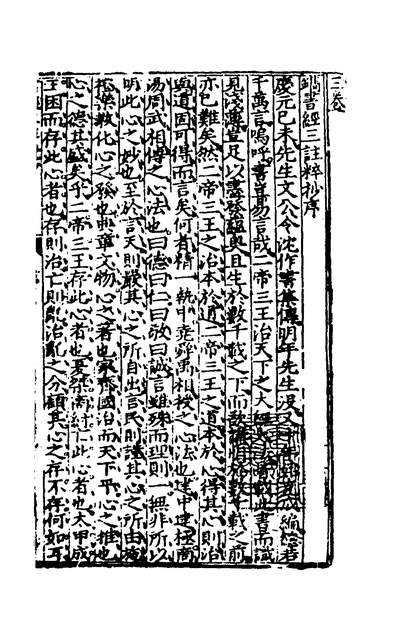 三卷
書經三註粹抄序
慶元己未先生文公令沈作書集傳明年先生沒又十年始克成編總若
干萬言嗚呼書豈易言哉二帝三王治天下之大經大法皆載此書而識
見淺薄豈足以盡發蘊奧且生於數千載之下而欲講明於數千載之前
亦已難矣然二帝三王之治本於道二帝三王之道本於心得其心則治
與道固可得而言矣何者精一執中堯舜禹相授之心法也建中建極商
湯周武相傳之心法也曰德曰仁曰敬曰誠言雖殊而理則一無非所以
明此心之妙也至於言天則嚴其心之所自出言民則謹其心之所由施
禮樂教化心之發也典章文物心之著也家齊國治而天下平心之推也
心之德其盛矣乎二帝三王存此心者也夏桀商紂亡此心者也太甲成
王困而存此心者也存則治亡則亂治亂之分顧其心之存不存何如耳